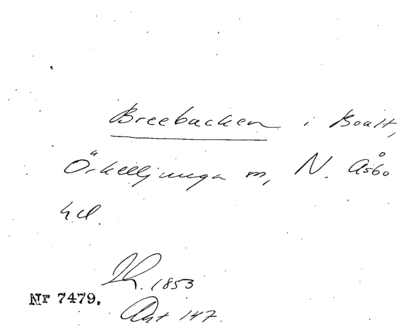 Breebacken i Boalt,
Örkelljunga sn, N. Åsbo
hd.
1853
Nr 7479.
Avt 147.